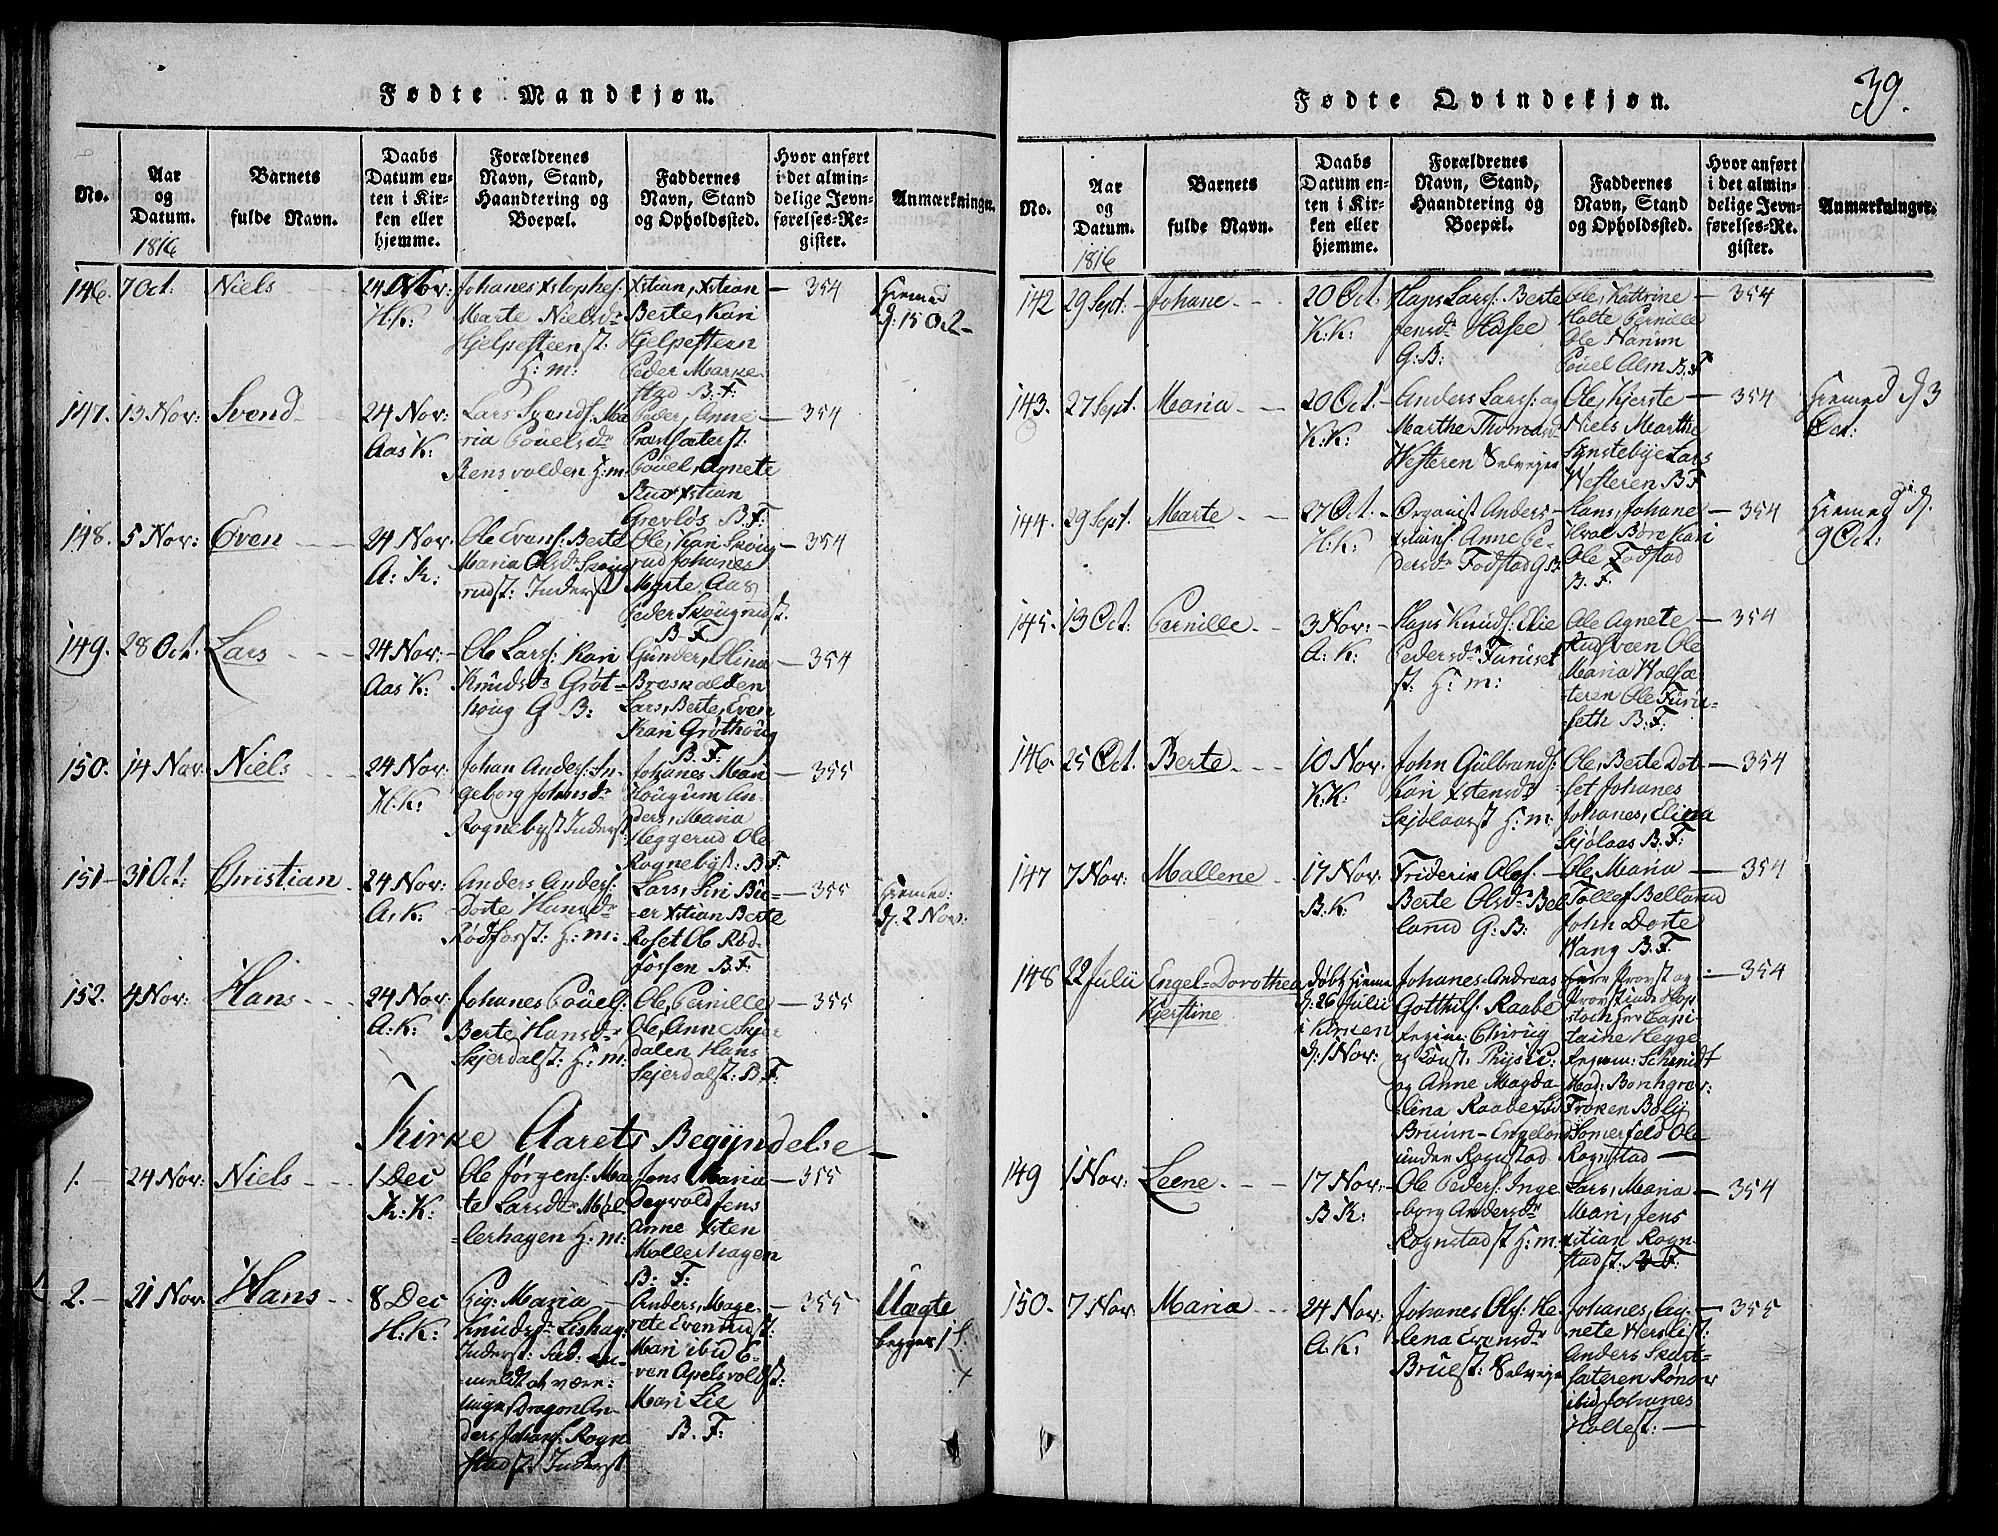 Fødte Mandkjøn.
No.
Aar
og
Datum.
1816
Barnets
fulde Navn.
Daabs
Datum en-
ten i Kir-
ken eller
hjemme.
Forældrenes
Navn, Stand,
Haandtering og
Boepæl.
Faddernes
Navn, Stand
og Opholdssted.
Hvor anført
i det almin-
delige Jevn-
førelses-Re-
gister.
Anmærkninger.
146. 7 Oct: Niels
24 Nov:
H.K:
Johanes xstophes:
Marte Nielsdr
Hjelpesteenst:
H: m:
xstian, xstian
Berte, Kari
Hjelpesteen
Peder Marke-
stad B.F.
354
Hiemed
d: 15 Oct
147. 13 Nov: Svend
24 Nov:
Aas K:
Lars Svends: Ma
ria Pouelsdr
Rensvolden H:m:
Peder, Anne
Præstsæterst:
Pouel, Agnete
Rud xstian
Grevløs B.F:
354
148. 5 Nov: Even
24 Nov:
A: K:
Ole Evens: Berte
Maria Olsdr Skoug
rudst: Inderst
Ole, Kari Skoug-
rud Johanes
Marte, Aas
Peder Skougrudst.
B.F
354
149. 28 Oct: Lars
24 Nov:
Aas K:
Ole Lars: Kari
Knudsdr Grøt-
houg G B:
Gunder, Olina
Breskalden
Lars, Berte, Even
Kari Grøthoug
B.F:
354
150. 14 Nov: Niels
24 Nov:
H.K:
Johan Anders: In-
geborg Johansdr
Rognebyst Inderst
Johanes Mari
Hougum An-
ders, Maria
Heggerud Ole
Rognebyst: B.F:
355
151 31 Oct: Christian
24 Nov:
A. K:
Anders Anders:
Dorte Hansdr
Rødfosst: H: m:
Lars, Siri Bu-
er xstian Berte
Roset Ole Rød-
fossen B.F.
355
Hiemed:
d: 2 Nov:
152. 4 Nov: Hans
24 Nov:
A: K:
Johanes Pouels:
Berte Hansdr
Skjerdalst: H: m:
Ole, Pernille
Ole, Anne Skjer
dalen Hans
Skjerdalst: B.F:
355
Kirke Aarets Begyndelse
1. 24 Nov: Niels
1 Dec
K: K:
Ole Jørgens: Mar
te Larsdr Møl-
lerhagen H: m:
Jens Maria
Degvold Jens
Anne xsten
Møllerhagen
B: F:
355
2. 21 Nov: Hans
8 Dec
H: K:
Pig: Maria
Knudsdr Lishag:
Inderst:
meldt at være
Dragon An-
ders Johans: Rogn-
stadst: Inderst
Anders, Mage-
rete Evenrudst:
Mari ibid E-
ven Apelsvoldst:
Mari Lie
B. F.
355
Uægte
begges 1 L:
x
39.
Fødte Qvindekjøn.
No.
Aar
og
Datum.
1816
Barnets
fulde Navn.
Daabs
Datum en-
ten i Kir-
ken eller
hjemme.
Forældrenes
Navn, Stand,
Haandtering og
Boepæl.
Faddernes
Navn, Stand
og Opholdssted.
Hvor anført
i det almin-
delige Jevn-
førelses-Re-
gister.
Anmærkninger.
142 29 Sept: Johane
20 Oct
K:K:
Hans Lars: Berte
Jensdr Hasee
G: B:
Ole, Kattrine
Holte Pernille
Ole Narum
Pouel Alm B.F
354
143. 27 Sept. Maria
20 Oct:
K:K:
Anders Lars: og
Marthe Thomasdr
Westeren Selveyer
Ole, Kjerste
Niels Marthe
Hynstebye Lars
Westeren B.F
354
Hiemed d: 3
Oct:
144. 29 Sept. Marte
27 Oct.
H: K:
Organist Anders
xstians: Anne Pe-
dersdr Fodstad G.B.
Hans, Johane
Hval Børe Kari
Ole Fodstad
B. F.
354
Hiemed d.
9 Oct:
145. 13 Oct: Pernille
3 Nov:
A: K:
Hans Knuds: Elie
Pedersdr Furuset
st: H: m:
Ole Agnete
Rudsveen Ole
Maria Holsæ-
teren Ole Furu-
seth B.F:
354
146. 25 Oct. Berte
10 Nov.
K.K:
John Gulbrands:
Kari xstensdr
Skjølaast H: m:
Ole, Berte Dot-
set Johanes
Johanes, Elina
Skjølaas B.F:
354
147 7 Nov: Mallene
17 Nov:
B.K:
Friderik Ols:
Berte Olsdr Bel
lerud G: B:
Ole, Maria
Tollef Bellerud
John Dorte
Wang B.F.
354
148 22 Julii Engel-Dorothea
Kjerstine
Døbt hiemme
d: 26 Julii
i Kirken
d: 1 Nov:
Johanes Andreas
Gotthilf Raabe
Regim: Chirurg
og Const: Physic:
og Anne Magda-
lena Raabe fød
Bruun Engelond
under Rognstad
Herr Provst og
Provstinde Hop-
stock Hr Capi-
taine Hegge
Regim: Schmidt
Mad: Bornhgrev:
Frøken Boly
Somerfeld Ole
Rognstad
354
149 1 Nov: Leene
17 Nov:
B K:
Ole Peders: Inge-
borg Andersdr
Rognstadst H: m:
Lars, Maria
Mari, Jens
xstian Rogn-
stadst: B F:
354
150. 7 Nov Maria
24 Nov:
A: K:
Johanes Ols: He-
lena Evensdr
Bruest: Selveyer
Johanes, Ag-
nete Werslist:
Anders Skart-
sæteren Rønow
ibid Johanes
Holtest:
355